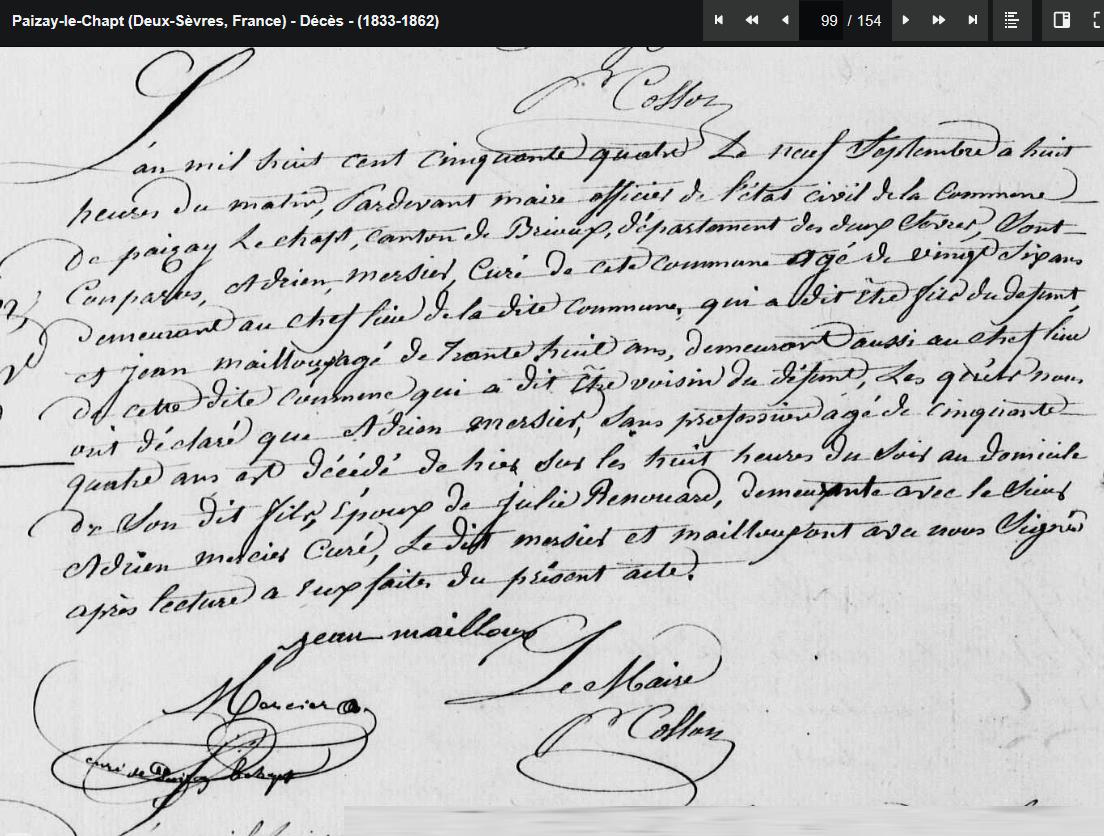 Paizay-le-Chapt (Deux-Sèvres, France) - Décès - (1833-1862)
99 / 154
Cosson
L'an mil huit cent cinquante quatre Le neuf Septembre a huit
heures du matin, Pardevant maire officier de l'état civil de la Commune
De paizay Le chapt, canton de Brioux, département des deux Sèvres, Sont
Comparus, Adrien, mersier, Curé de cete commune agé de vingt Six ans
Demeurant au chef lieu de la dite Commune, qui a dit Être fils du defunt
et jean mailloux agé de Trante huit ans, demeurant aussi au chef lieu
de cette dite commune qui a dit Être voisin du défunt, Les quels nous
ont déclaré que Adrien mersier, Sans profession agé de cinquante
quatre ans est décédé de hier sur les huit heures du Soir au domicile
de Son dit fils, Époux de julie Renouard, demeurante avec le Sieur
Adrien mercier Curé, Le dit mersier et mailloux ont avec nous Signés
après lecture a eux faites du présent acte.
jean mailloux
Le Maire
Mercier a.
Cosson
curé de Paizay le chapt